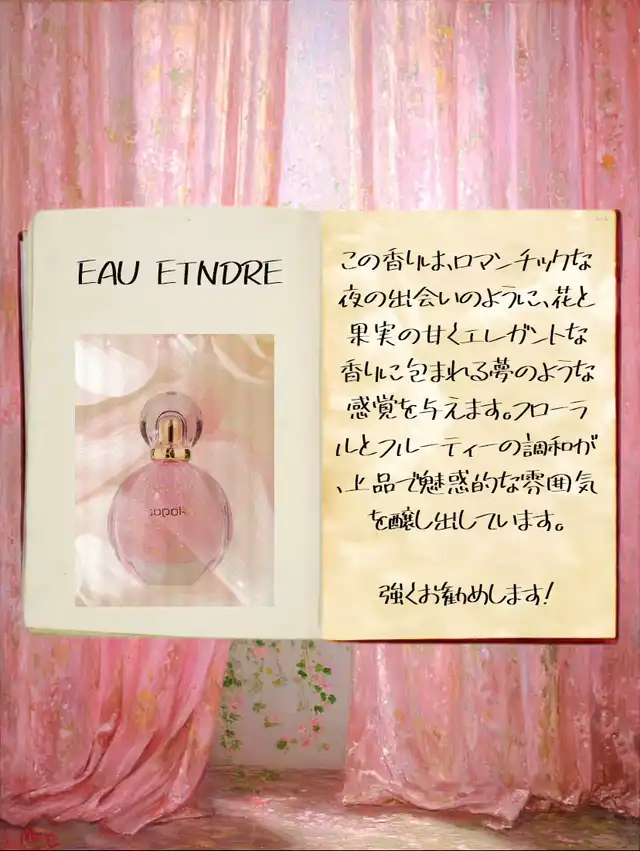 EAU ETNDRE
この香りは、ロマンチックな
夜の出会いのように、花と
果実の甘くエレガントな
香りに包まれる夢のような
感覚を与えます。フローラ
ルとフルーティーの調和が
、上品で魅惑的な雰囲気
を醸し出しています。
強くお勧めします!